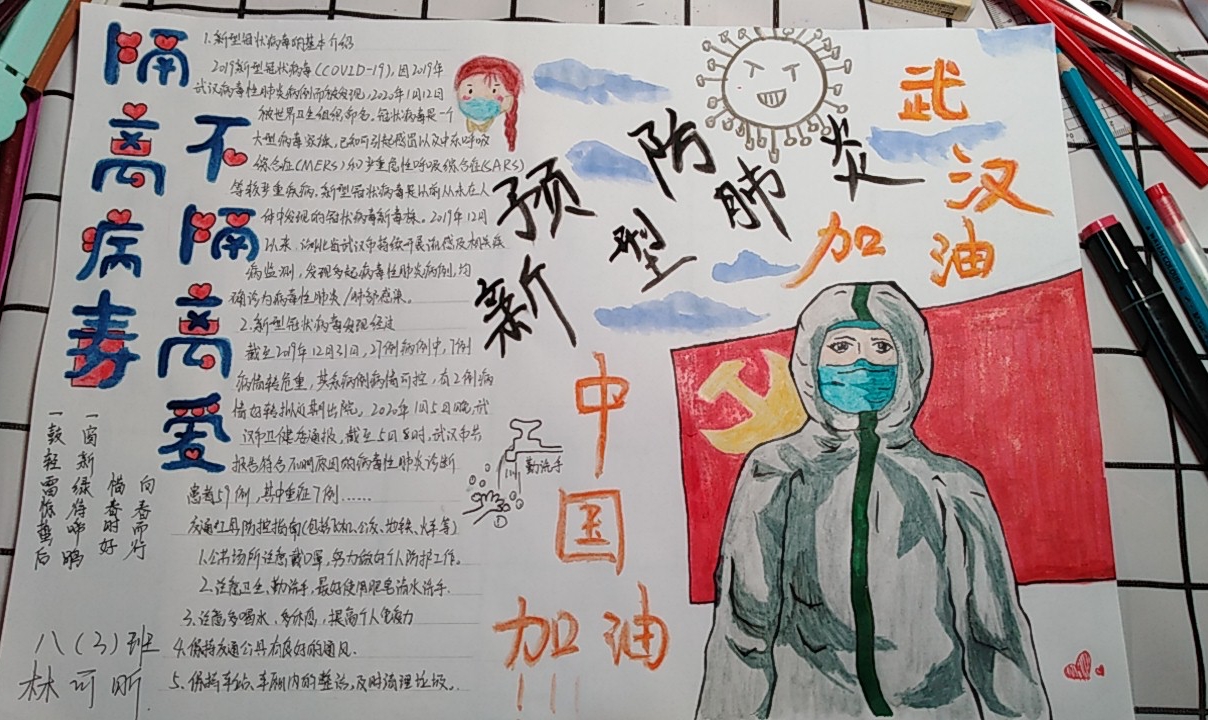 隔离病毒
不隔离爱
1.新型冠状病毒的基本介绍
2019新型冠状病毒(COVID-19),因2019年
武汉病毒性肺炎病例而被发现,2020年1月12日
被世界卫生组织命名。冠状病毒是一个
大型病毒家族,已知可引起感冒以及中东呼吸
综合征(MERS)和严重急性呼吸综合征(SARS)
等较严重疾病。新型冠状病毒是以前从未在人
体中发现的冠状病毒新毒株。2019年12月
以来,湖北省武汉市持续开展流感及相关疾
病监测,发现多起病毒性肺炎病例,均
确诊为病毒性肺炎/肺部感染。
2.新型冠状病毒发现经过
截至2019年12月31日,27例病例中,7例
病情转危重,其余病例病情可控,有2例病
情好转拟近期出院。2020年1月5日晚,武
汉市卫健委通报,截至5日8时,武汉市共
报告符合不明原因的病毒性肺炎诊断
患者59例,其中重症7例……
交通工具防控指南(包括飞机、公交、地铁、火车等)
1.公共场所注意戴口罩,努力做好个人防护工作。
2.注意卫生,勤洗手,最好使用肥皂流水洗手.
3.注意多喝水,多休息,提高个人免疫力
4.保持交通工具有良好的通风.
5.保持车站、车厢内的整洁,及时清理垃圾.
预防
新型肺炎
武汉
加油
中国
加油
!!!
勤洗手
向香而行
惜香时好
一窗新绿待啼鹏
一鼓轻雷惊蛰后
八(3)班
林可昕.